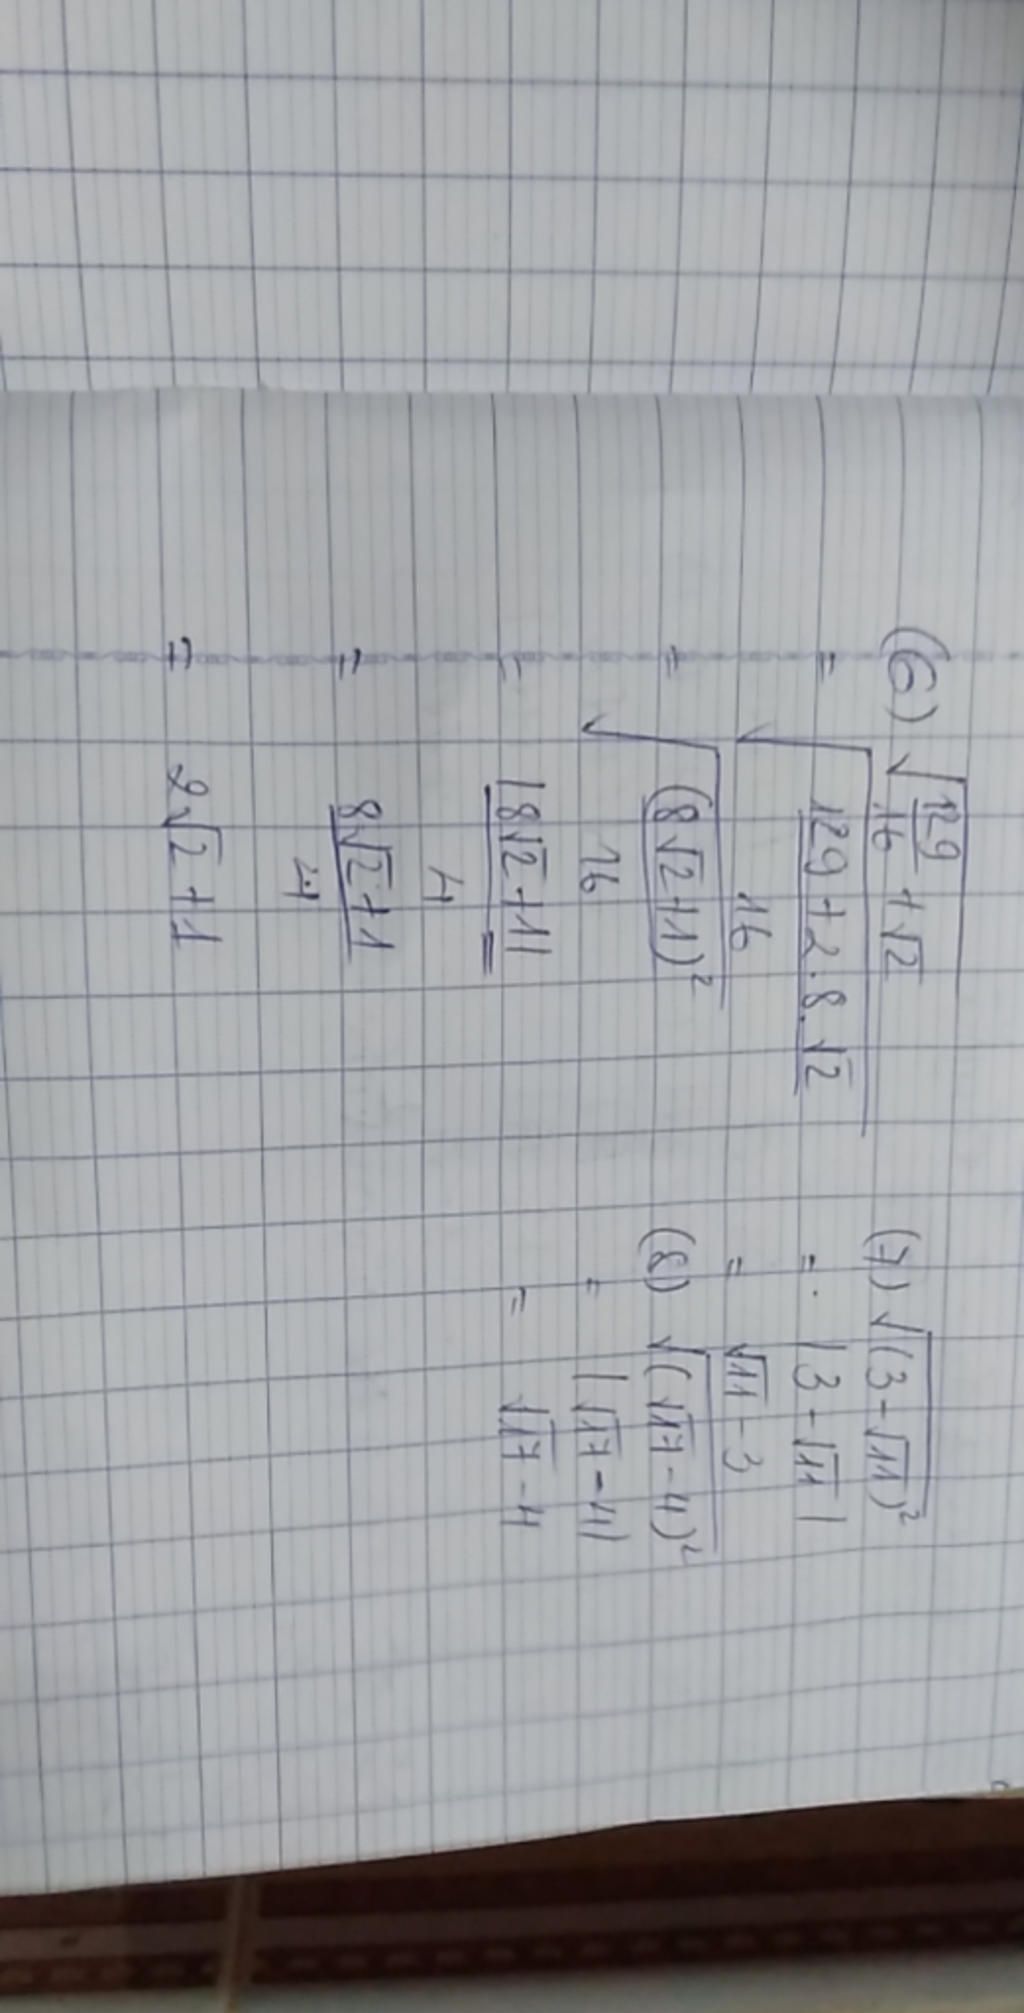 (6) √(129/16 + √2)
= √((129 + 2.8.√2)/16)
= √((8√2+1)²/16)
= |8√2+1|/4 =
= (8√2+1)/4
= 2√2+1
(7) √((3-√11)²)
= . |3-√11|
= √11 - 3
(8) √((√17-4)²)
= |√17-4|
= √17-4